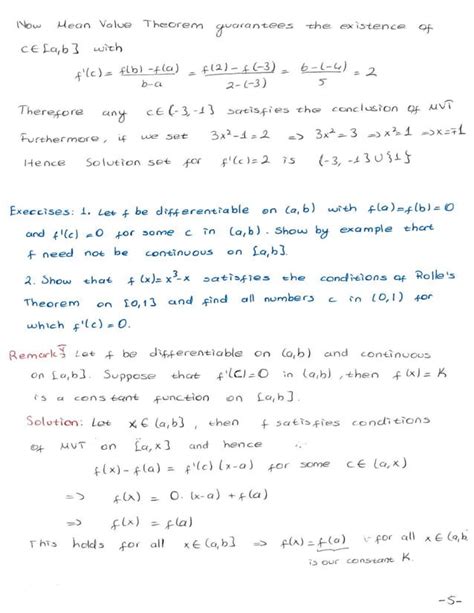 Now Mean Value Theorem guarantees the existence of
c∈[a,b] with
f'(c) = f(b)-f(a) / b-a = f(2)-f(-3) / 2-(-3) = 6-(-4) / 5 = 2
Therefore any c∈(-3,-1] satisfies the conclusion of MVT
Furthermore, if we set 3x²-1=2 => 3x²=3 => x²=1 => x=∓1
Hence Solution set for f'(c)=2 is (-3,-1]∪{1}
Exercises: 1. Let f be differentiable on (a,b) with f(a)=f(b)=0
and f'(c)=0 for some c in (a,b). Show by example that
f need not be continuous on [a,b].
2. Show that f(x)=x³-x satisfies the conditions of Rolle's
Theorem on [0,1] and find all numbers c in (0,1) for
which f'(c)=0.
Remark: Let f be differentiable on (a,b) and continuous
on [a,b]. Suppose that f'(C)=0 in (a,b), then f(x)=K
is a constant function on [a,b].
Solution: Let x∈(a,b], then f satisfies conditions
of MVT on [a,x] and hence
f(x)-f(a) = f'(c)(x-a) for some c∈(a,x)
=> f(x) = 0.(x-a)+f(a)
=> f(x) = f(a)
This holds for all x∈(a,b] => f(x)=f(a) for all x∈(a,b]
is our constant K.
-5-